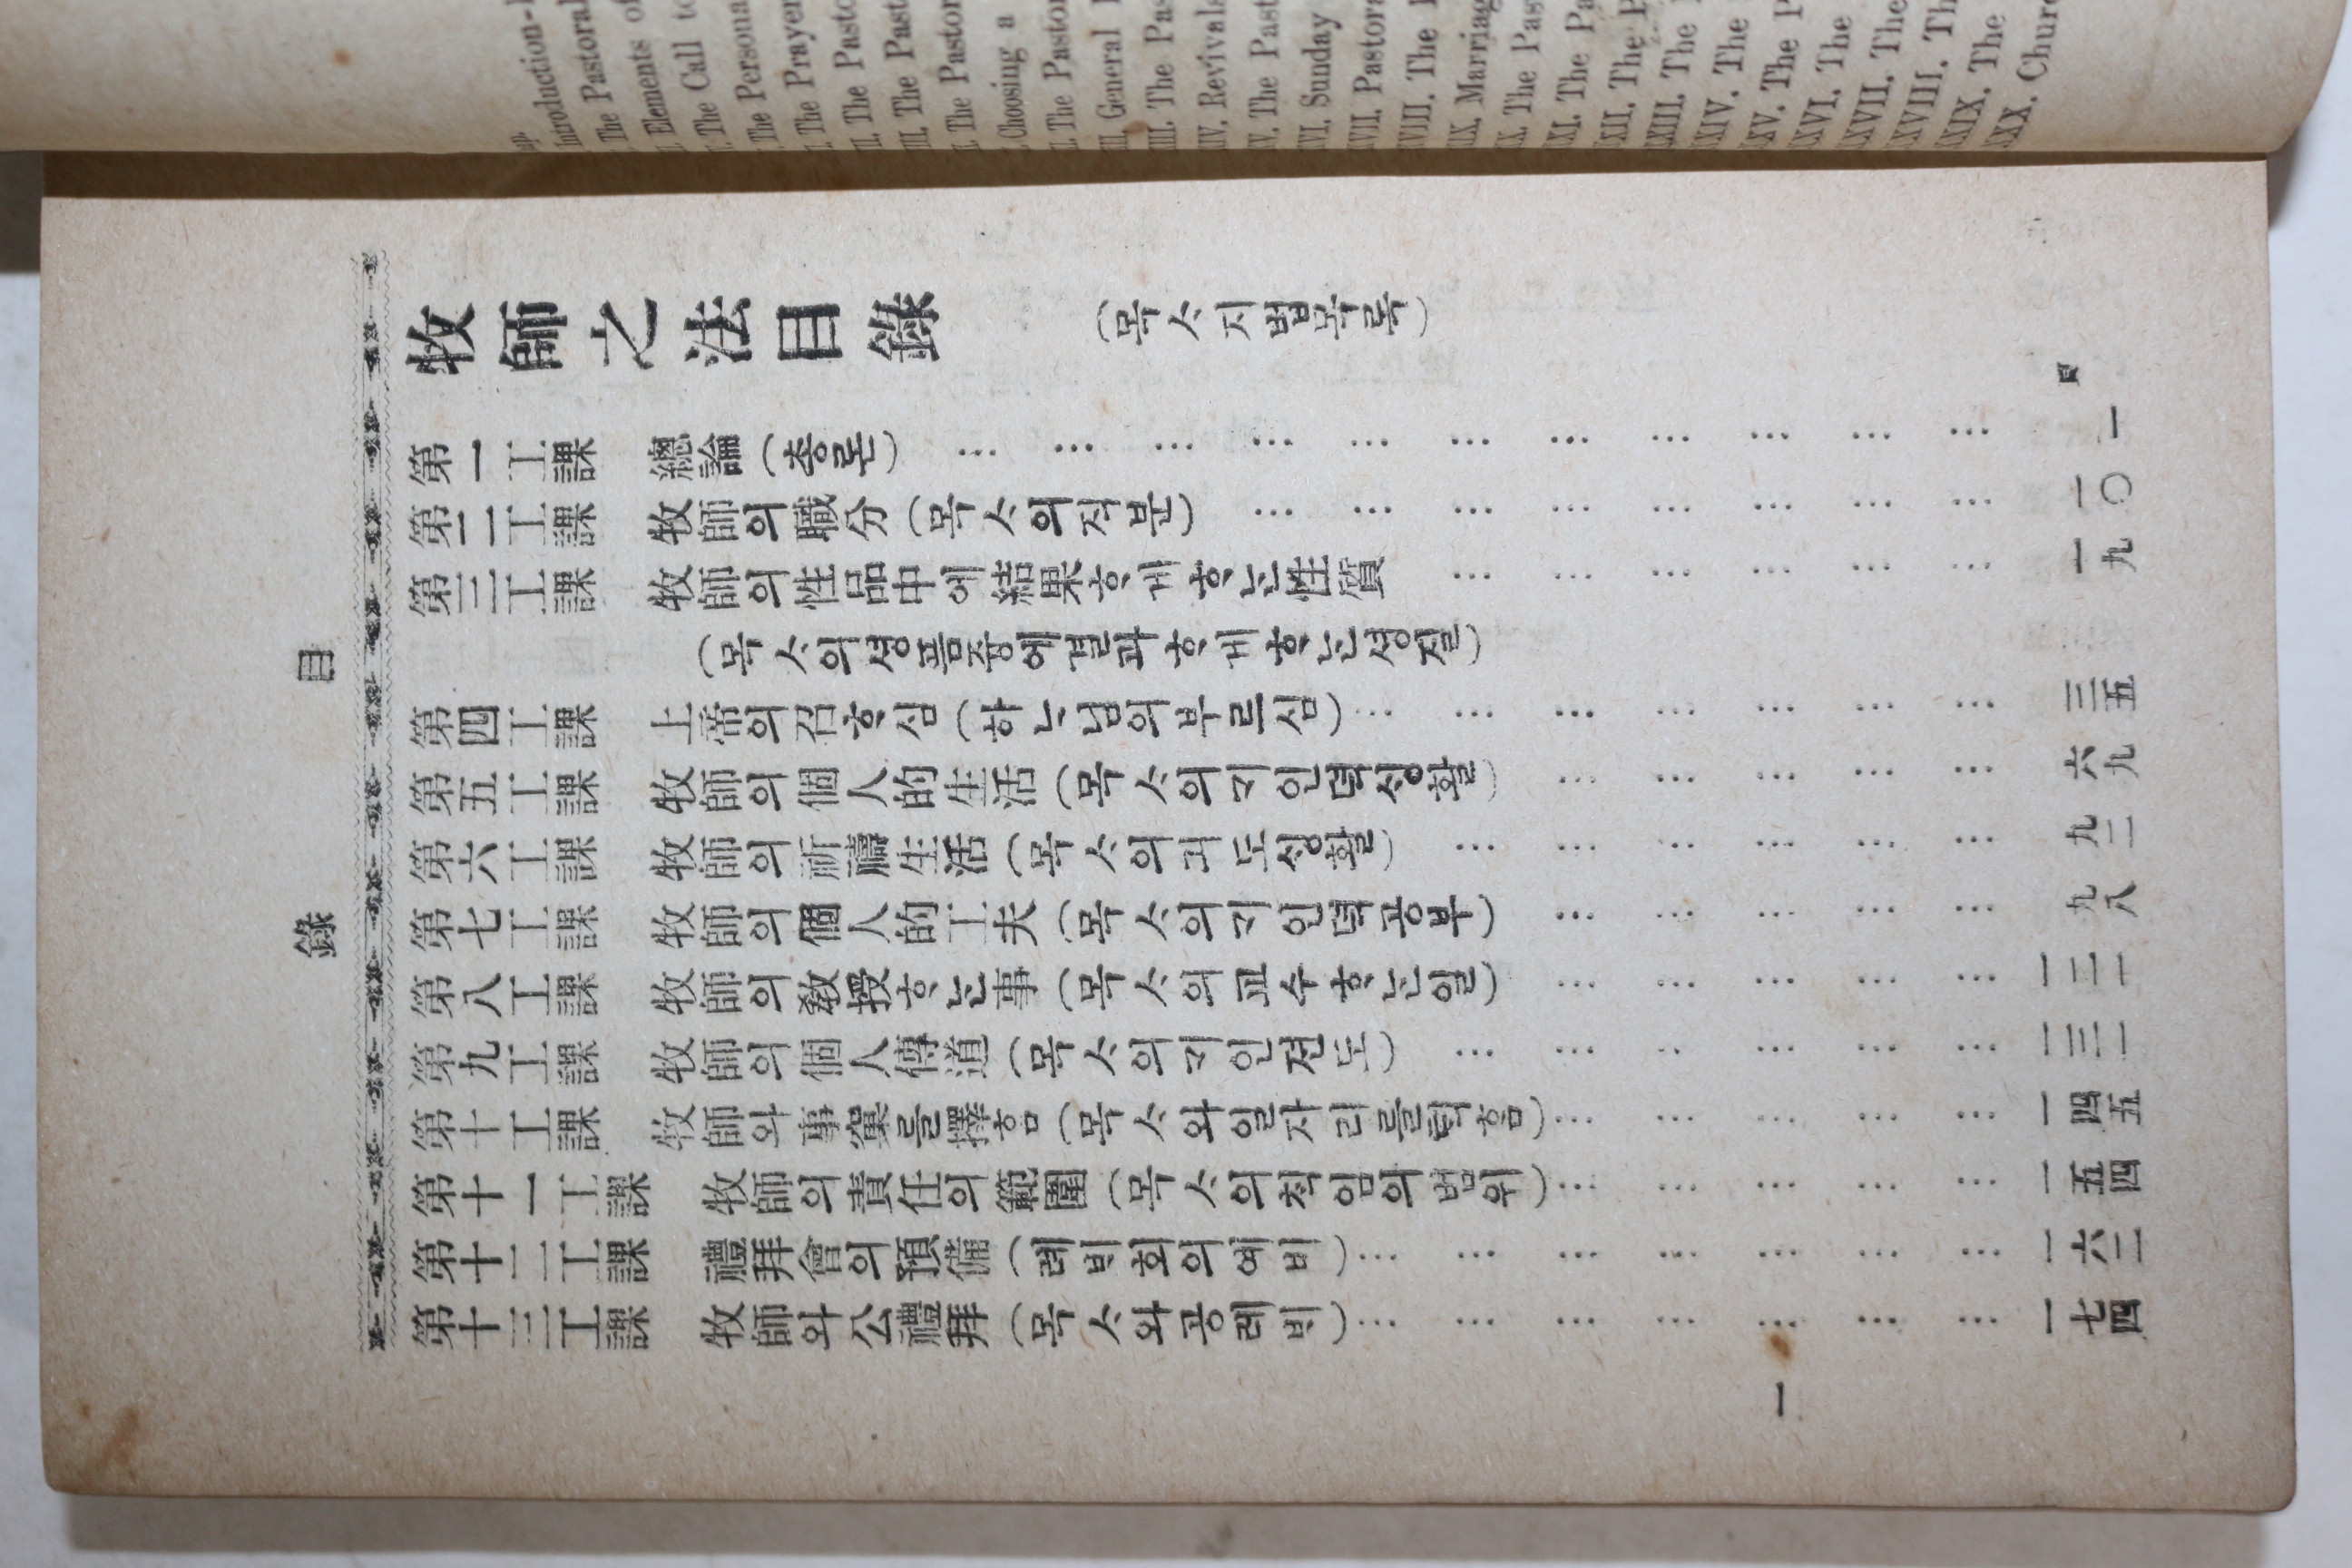 目錄
牧師之法目錄 (목ᄉᆞ지법목록)
第一工課 總論(총론)……………………………… 一
第二工課 牧師의職分(목ᄉᆞ의직분)……………………… 一〇
第三工課 牧師의性品中에結果ᄒᆞ게ᄒᆞᄂᆞᆫ性質……………… 一九
(목ᄉᆞ의셩픔즁에결과ᄒᆞ게ᄒᆞᄂᆞᆫ셩질)
第四工課 上帝의召ᄒᆞ심(하ᄂᆞ님의부르심)…………………… 三五
第五工課 牧師의個人的生活(목ᄉᆞ의ᄀᆡ인뎍ᄉᆡᆼ활)…………… 六九
第六工課 牧師의祈禱生活(목ᄉᆞ의긔도ᄉᆡᆼ활)……………… 九二
第七工課 牧師의個人的工夫(목ᄉᆞ의ᄀᆡ인뎍공부)…………… 九八
第八工課 牧師의敎授ᄒᆞᄂᆞᆫ事(목ᄉᆞ의교수ᄒᆞᄂᆞᆫ일)…………… 一二一
第九工課 牧師의個人傳道(목ᄉᆞ의ᄀᆡ인젼도)……………… 一三一
第十工課 牧師와事窠를擇ᄒᆞᆷ(목ᄉᆞ와일자리를ᄐᆡᆨᄒᆞᆷ)…………… 一四五
第十一工課 牧師의責任의範圍(목ᄉᆞ의ᄎᆡᆨ임의범위)…………… 一五四
第十二工課 禮拜會의預備(례ᄇᆡ회의예비)…………………… 一六二
第十三工課 牧師와公禮拜(목ᄉᆞ와공례ᄇᆡ)…………………… 一七四
一
Introduction-
The Pastoral
Elements of
The Call to
The Persona
The Prayer
The Pasto
The Past
The Pastor
Choosing a
The Pastor
General
The Pas
XIV. Revivals
XV. The Past
XVI. Sunday
XVII. Pastora
XVIII. The
XIX. Marriag
XX. The Pas
XXI. The Pa
XXII. The P
XXIII. The
XXIV. The
XXV. The P
XXVI. The
XXVII. The
XXVIII. Th
XXIX. The
XXX. Chur